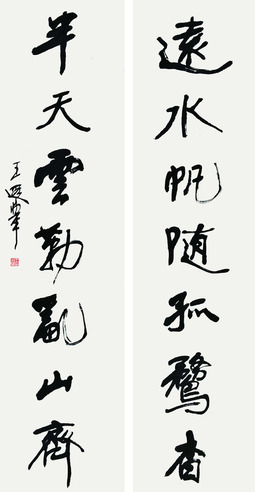 遠水帆随孤鶩杳
半天雲勒亂山齊
王遐舉